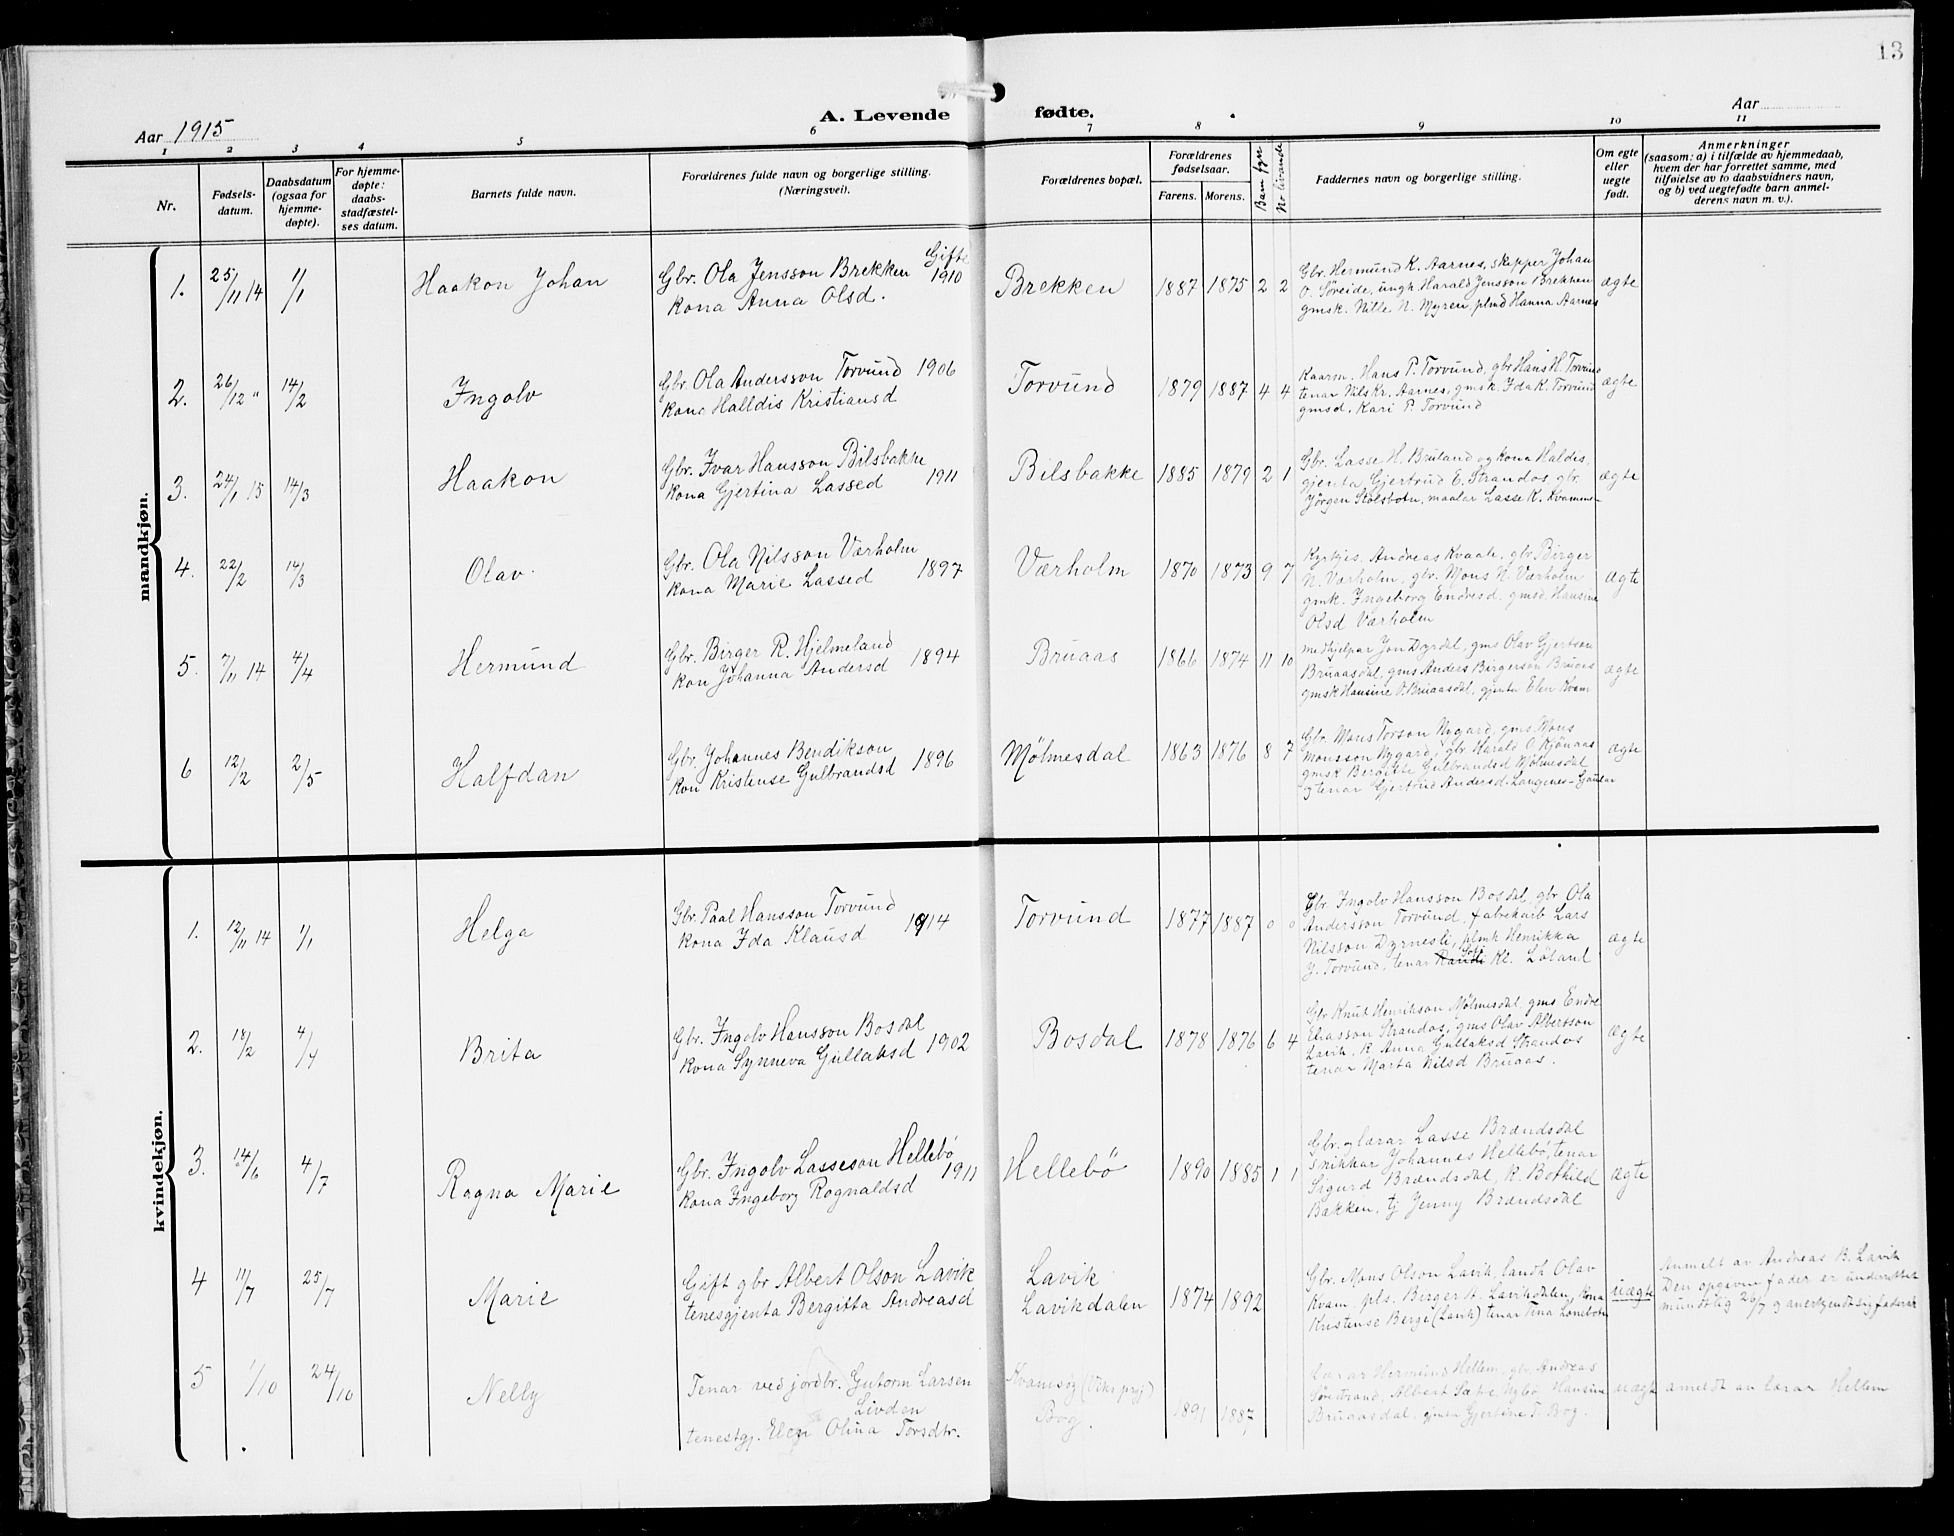 13
Aar 1915
A. Levende fødte.
Aar
1 2 3 4 5 6 7 8 9 10 11
Nr.
Fødsels-
datum.
Daabsdatum
(ogsaa for
hjemme-
døpte).
For hjemme-
døpte:
daabs-
stadfæstel-
ses datum.
Barnets fulde navn.
Forældrenes fulde navn og borgerlige stilling.
(Næringsvei).
Forældrenes bopæl.
Forældrenes
fødselsaar.
Farens. Morens.
Barn fyr
No livande
Faddernes navn og borgerlige stilling.
Om egte
eller
uegte
født.
Anmerkninger
(saasom: a) i tilfælde av hjemmedaab,
hvem der har forrettet samme, med
tilføielse av to daabsvidners navn,
og b) ved uegtefødte barn anmel-
derens navn m. v.).
mandkjøn.
1. 25/11 14 1/1 Haakon Johan
Gbr. Ola Jensson Brekken Gifte 1910
Kona Anna Olsd.
Brekken 1887 1875 2 2
Gbr. Hermund K. Aarnes, skipper Johan
O. Søreide, ungk. Harald Jensson Brekken
gmsk. Nille N. Myren, plmd Hanna Aarnes
ægte
2. 26/12 " 14/2 Ingolv
Gbr. Ola Andersson Torvund 1906
Kona Halldis Kristiansd
Torvund 1879 1887 4 4
Kaarm. Hans P. Torvund, gbr Hans H. Torvund
tenar Nils Kr. Aarnes, gmsk. Ida K. Torvund
gmsd. Kari P. Torvund
ægte
3. 24/1 15 14/3 Haakon
Gbr. Ivar Hansson Bilsbakke 1911
Kona Gjertina Lassed
Bilsbakke 1885 1879 2 1
Gbr. Lasse H. Bruland og kona Haldis,
gjenta Gjertrud E. Strandos, gbr.
Jörgen Stölsbotn, maalar Lasse K. Kvamme
ægte
4. 22/2 14/3 Olav
Gbr. Ola Nilsson Værholm 1897
Kona Marie Lassed
Værholm 1870 1873 9 7
Kyrkjes. Andreas Kvaale, gbr Birger
N. Værholm, gbr. Mons N. Værholm
gmk. Ingeborg Endresd. gmsd. Hansine
Olsd Værholm
ægte
5. 7/11 14 4/4 Hermund
Gbr. Birger R. Hjelmeland 1894
Kon Johanna Andersd
Bruaas 1866 1874 11 10
medhjelpar Jon Dyrdal, gms Olav Gjertsen
Bruaasdal, gms Anders Birgerson Bruaas
gmsk Hansine O. Bruaasdal, gjenta Elen Kvam
ægte
6 12/2 2/5 Halfdan
Gbr. Johannes Bendikson 1896
Kon Kristense Gulbrandsd
Mölmesdal 1863 1876 8 7
Gbr. Mons Torson Nygard, gms Mons
Monsson Nygard, gbr Harald O. Kjönaas
gmsk Bergitte Gulbrandsd Mölmesdal
og tenar Gjertrud Andersd. Langenes - Gaular
ægte
kvindekjøn.
1. 12/11 14 1/1 Helga
Gbr. Paal Hansson Torvund 1914
Kona Ida Klausd
Torvund 1877 1887 0 0
Gbr. Ingolv Hansson Bosdal, gbr Ola
Andersson Torvund, fabrikarb Lars
Nilsson Dyrnesli, plmk Henrikka
J. Torvund, tenar Kl. Løland
ægte
2. 18/2 4/4 Brita
Gbr. Ingolv Hansson Bosdal 1902
Kona Synneva Gullaksd
Bosdal 1878 1876 6 4
Gbr Knut Henrikson Mölmesdal, gms Endre
Eliasson Strandos, gms Olav Albertson
Lavik, K. Anna Gullaksd Strandos
tenar Marta Nilsd Bruaas.
ægte
3. 14/6 4/7 Ragna Marie
Gbr. Ingolv Lasseson Hellebö 1911
Kona Ingeborg Ragnaldsd
Hellebö 1890 1885 1 1
Gbr. og lærar Lasse Brændsdal
snikkar Johannes Hellebö, tenar
Sigurd Brændsdal, K. Bothild
Bakken, tj Jenny Brændsdal
ægte
4 11/7 25/7 Marie
Gift gbr Albert Olson Lavik
tenesgjenta Bergitta Andreasd
Lavik
Lavikdalen 1874 1892
Gbr. Mons Olson Lavik, landh Olav
Kvam, pls. Birger A. Lavikdalen, Kona
Kristense Berge (Lavik) tenar Tina Lonebotn
uægte
Anmelt av Andreas B. Lavik
Den opgevne fader er underrettet
mundtlig 26/7 og anerkjendt sig fadersk
5 1/10 24/10 Nelly
Tenar ved jordbr. Gutorm Larsen
Livden
tenestgj. Elen Olina Torsdtr.
Kvamsøy (Viks prgj)
Bog. 1891 1887
Lærar Hermund Hellem, gbr Andreas
Sørestrand, Albert Sætre Nybø, Hansine
Bruaasdal, gjenta Gjertine T. Bog.
uægte
ameldt an lærar Hellem